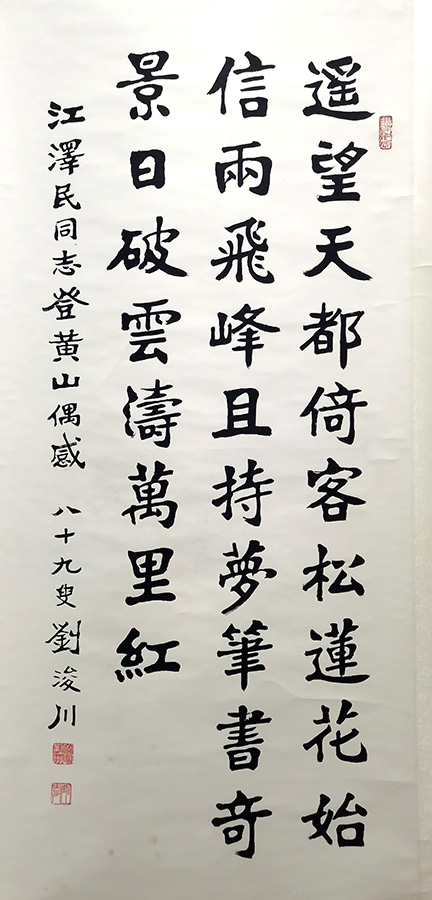 遥望天都倚客松蓮花始
信兩飛峰且持夢筆書奇
景日破雲濤萬里紅
江澤民同志登黄山偶感 八十九叟劉浚川